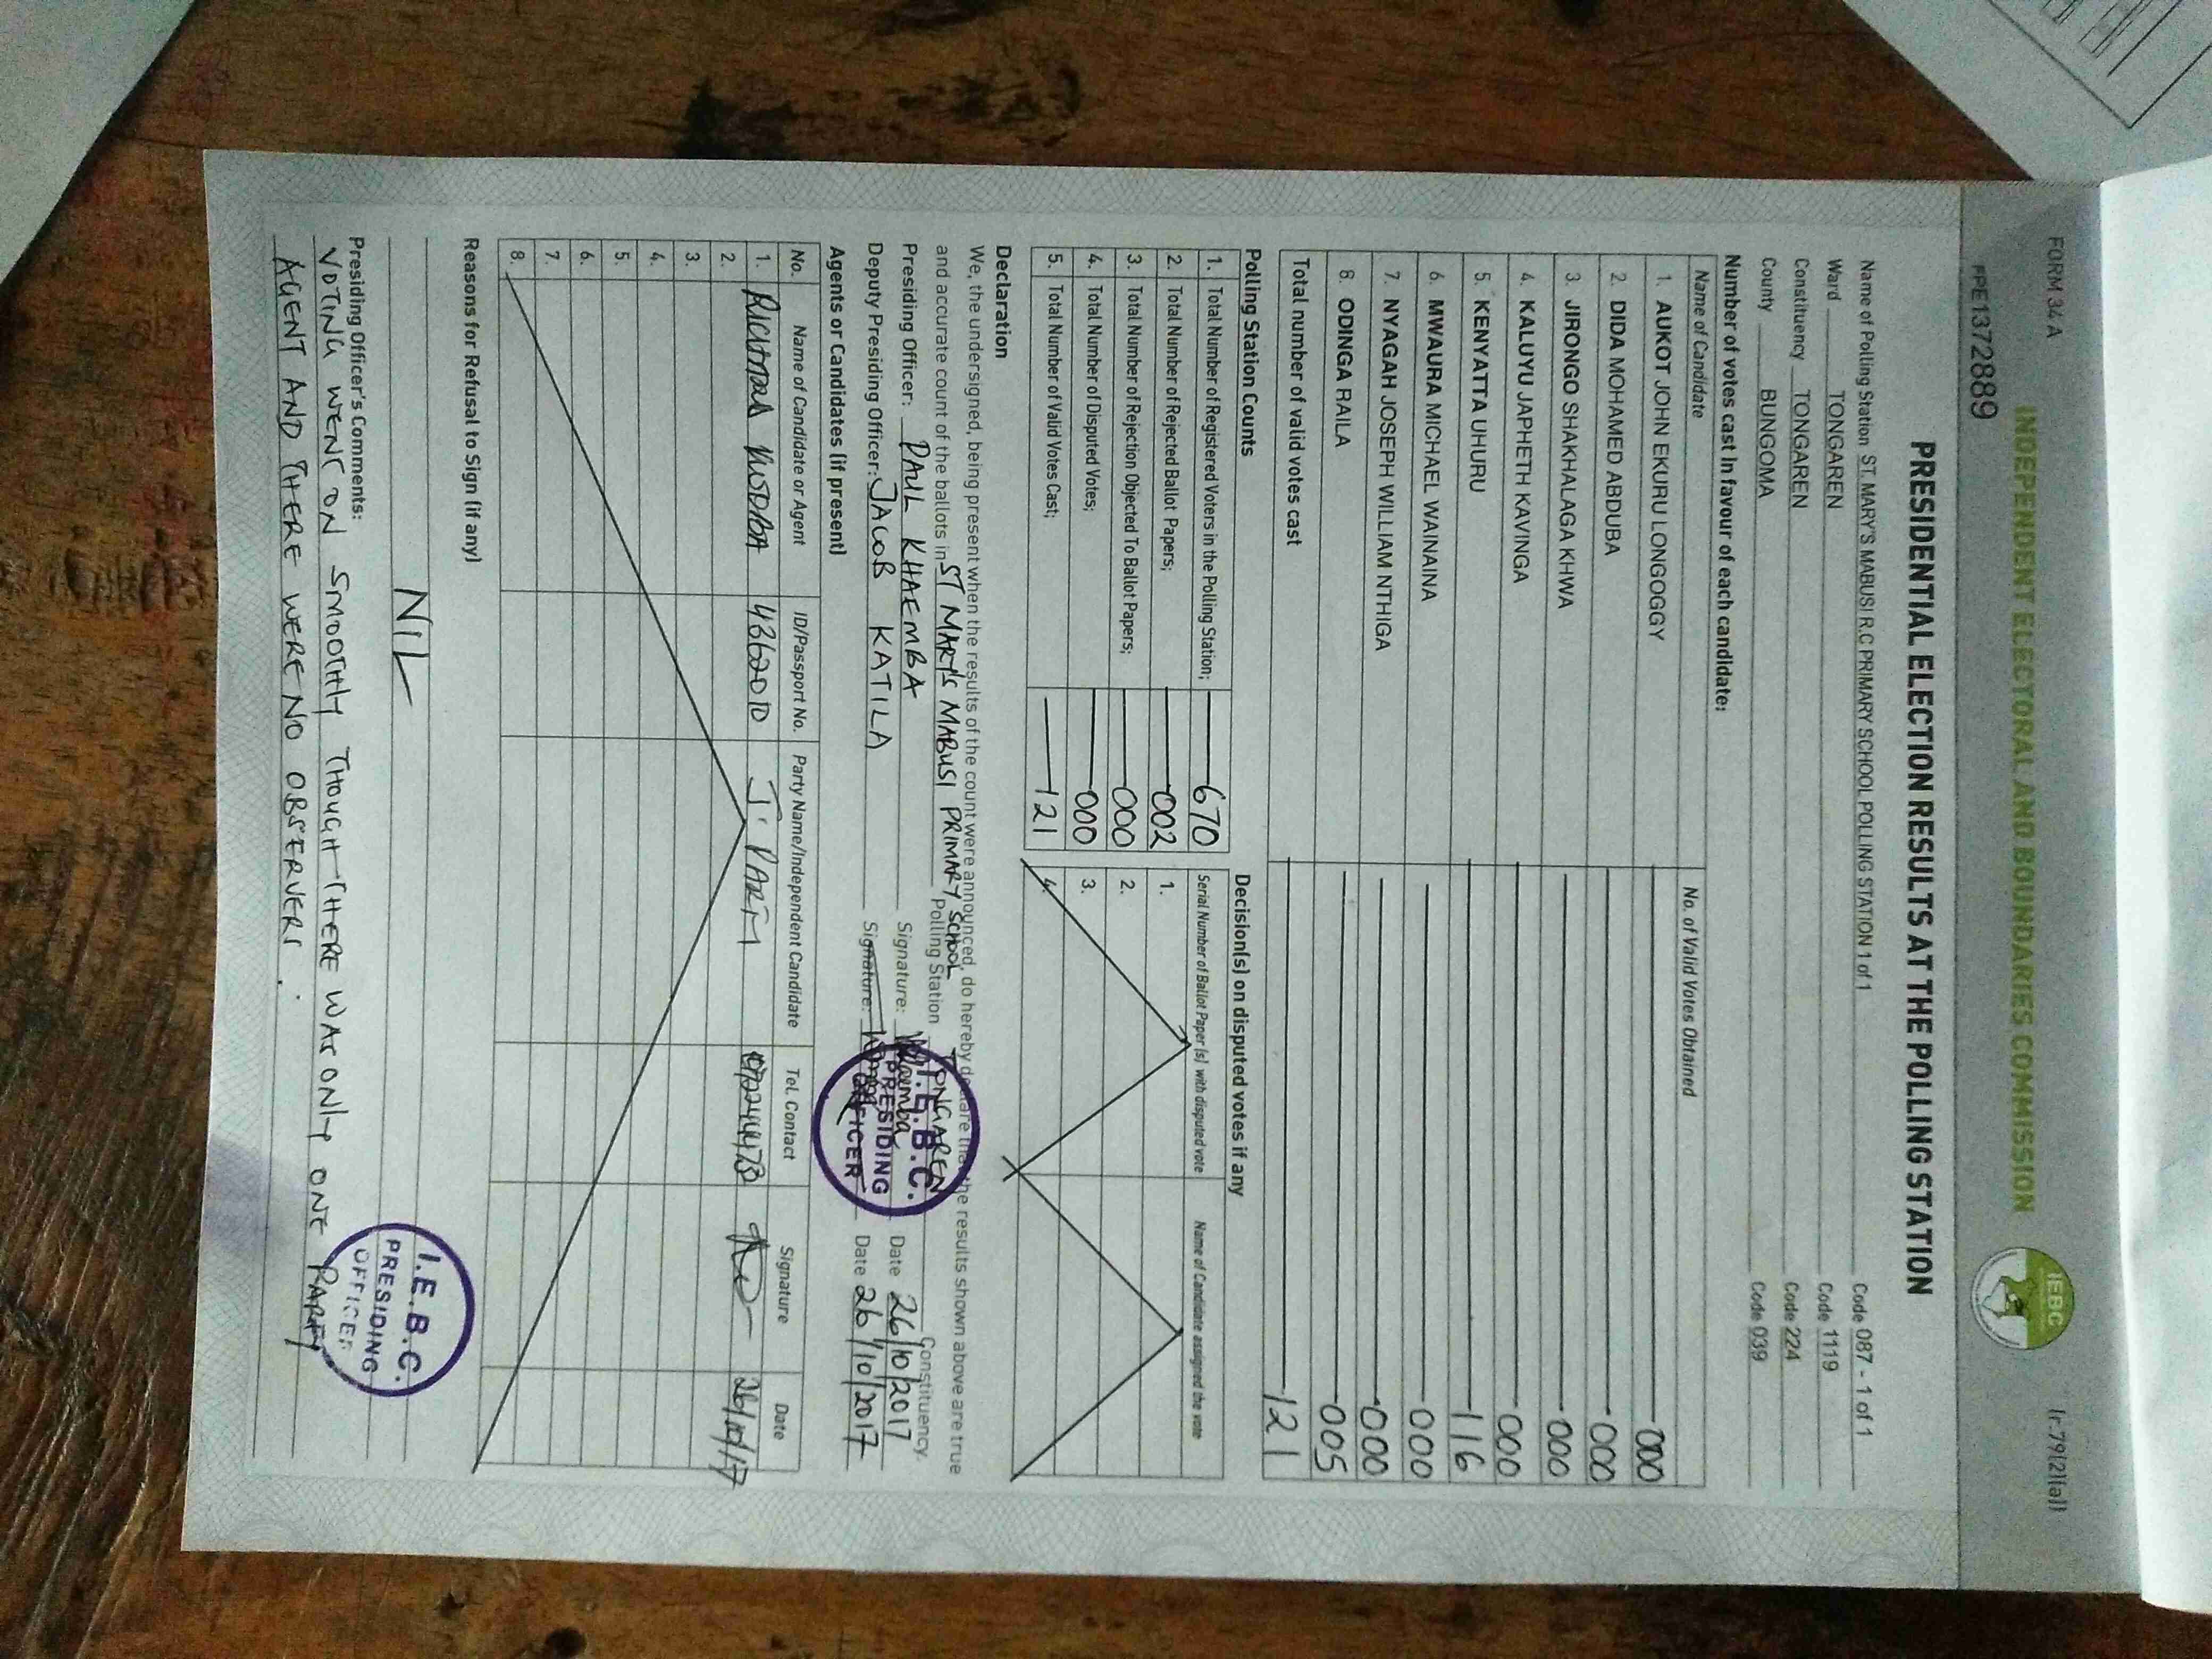 FORM 34 A
(r.79(2)(a))
INDEPENDENT ELECTORAL AND BOUNDARIES COMMISSION
IEBC
PPE1372889
PRESIDENTIAL ELECTION RESULTS AT THE POLLING STATION
Name of Polling Station ST. MARY'S MABUSI R.C PRIMARY SCHOOL POLLING STATION 1 of 1 Code 087 - 1 of 1
Ward TONGAREN Code 1119
Constituency TONGAREN Code 224
County BUNGOMA Code 039
Number of votes cast in favour of each candidate:
Name of Candidate No. of Valid Votes Obtained
1. AUKOT JOHN EKURU LONGOGGY 000
2. DIDA MOHAMED ABDUBA 000
3. JIRONGO SHAKHALAGA KHWA 000
4. KALUYU JAPHETH KAVINGA 000
5. KENYATTA UHURU 116
6. MWAURA MICHAEL WAINAINA 000
7. NYAGAH JOSEPH WILLIAM NTHIGA 000
8. ODINGA RAILA 005
Total number of valid votes cast 121
Polling Station Counts
1. Total Number of Registered Voters in the Polling Station; 670
2. Total Number of Rejected Ballot Papers; 002
3. Total Number of Rejection Objected To Ballot Papers; 000
4. Total Number of Disputed Votes; 000
5. Total Number of Valid Votes Cast; 121
Decision(s) on disputed votes if any
Serial Number of Ballot Paper (s) with disputed vote Name of Candidate assigned the vote
1.
2.
3.
4.
Declaration
We, the undersigned, being present when the results of the count were announced, do hereby declare that the results shown above are true
and accurate count of the ballots in ST MARY'S MABUSI PRIMARY SCHOOL Polling Station TONGAREN Constituency.
Presiding Officer: PAUL KHAEMBA Signature: Date 26/10/2017
Deputy Presiding Officer: JACOB KATILA Signature: Date 26/10/2017
I.E.B.C.
PRESIDING
OFFICER
Agents or Candidates (if present)
No. Name of Candidate or Agent ID/Passport No. Party Name/Independent Candidate Tel. Contact Signature Date
1. 4362010 J. PARTY 26/10/17
2.
3.
4.
5.
6.
7.
8.
Reasons for Refusal to Sign (if any)
NIL
Presiding Officer's Comments:
VOTING WENT ON SMOOTHLY THOUGH THERE WAS ONLY ONE PARTY
AGENT AND THERE WERE NO OBSERVERS.
I.E.B.C.
PRESIDING
OFFICER